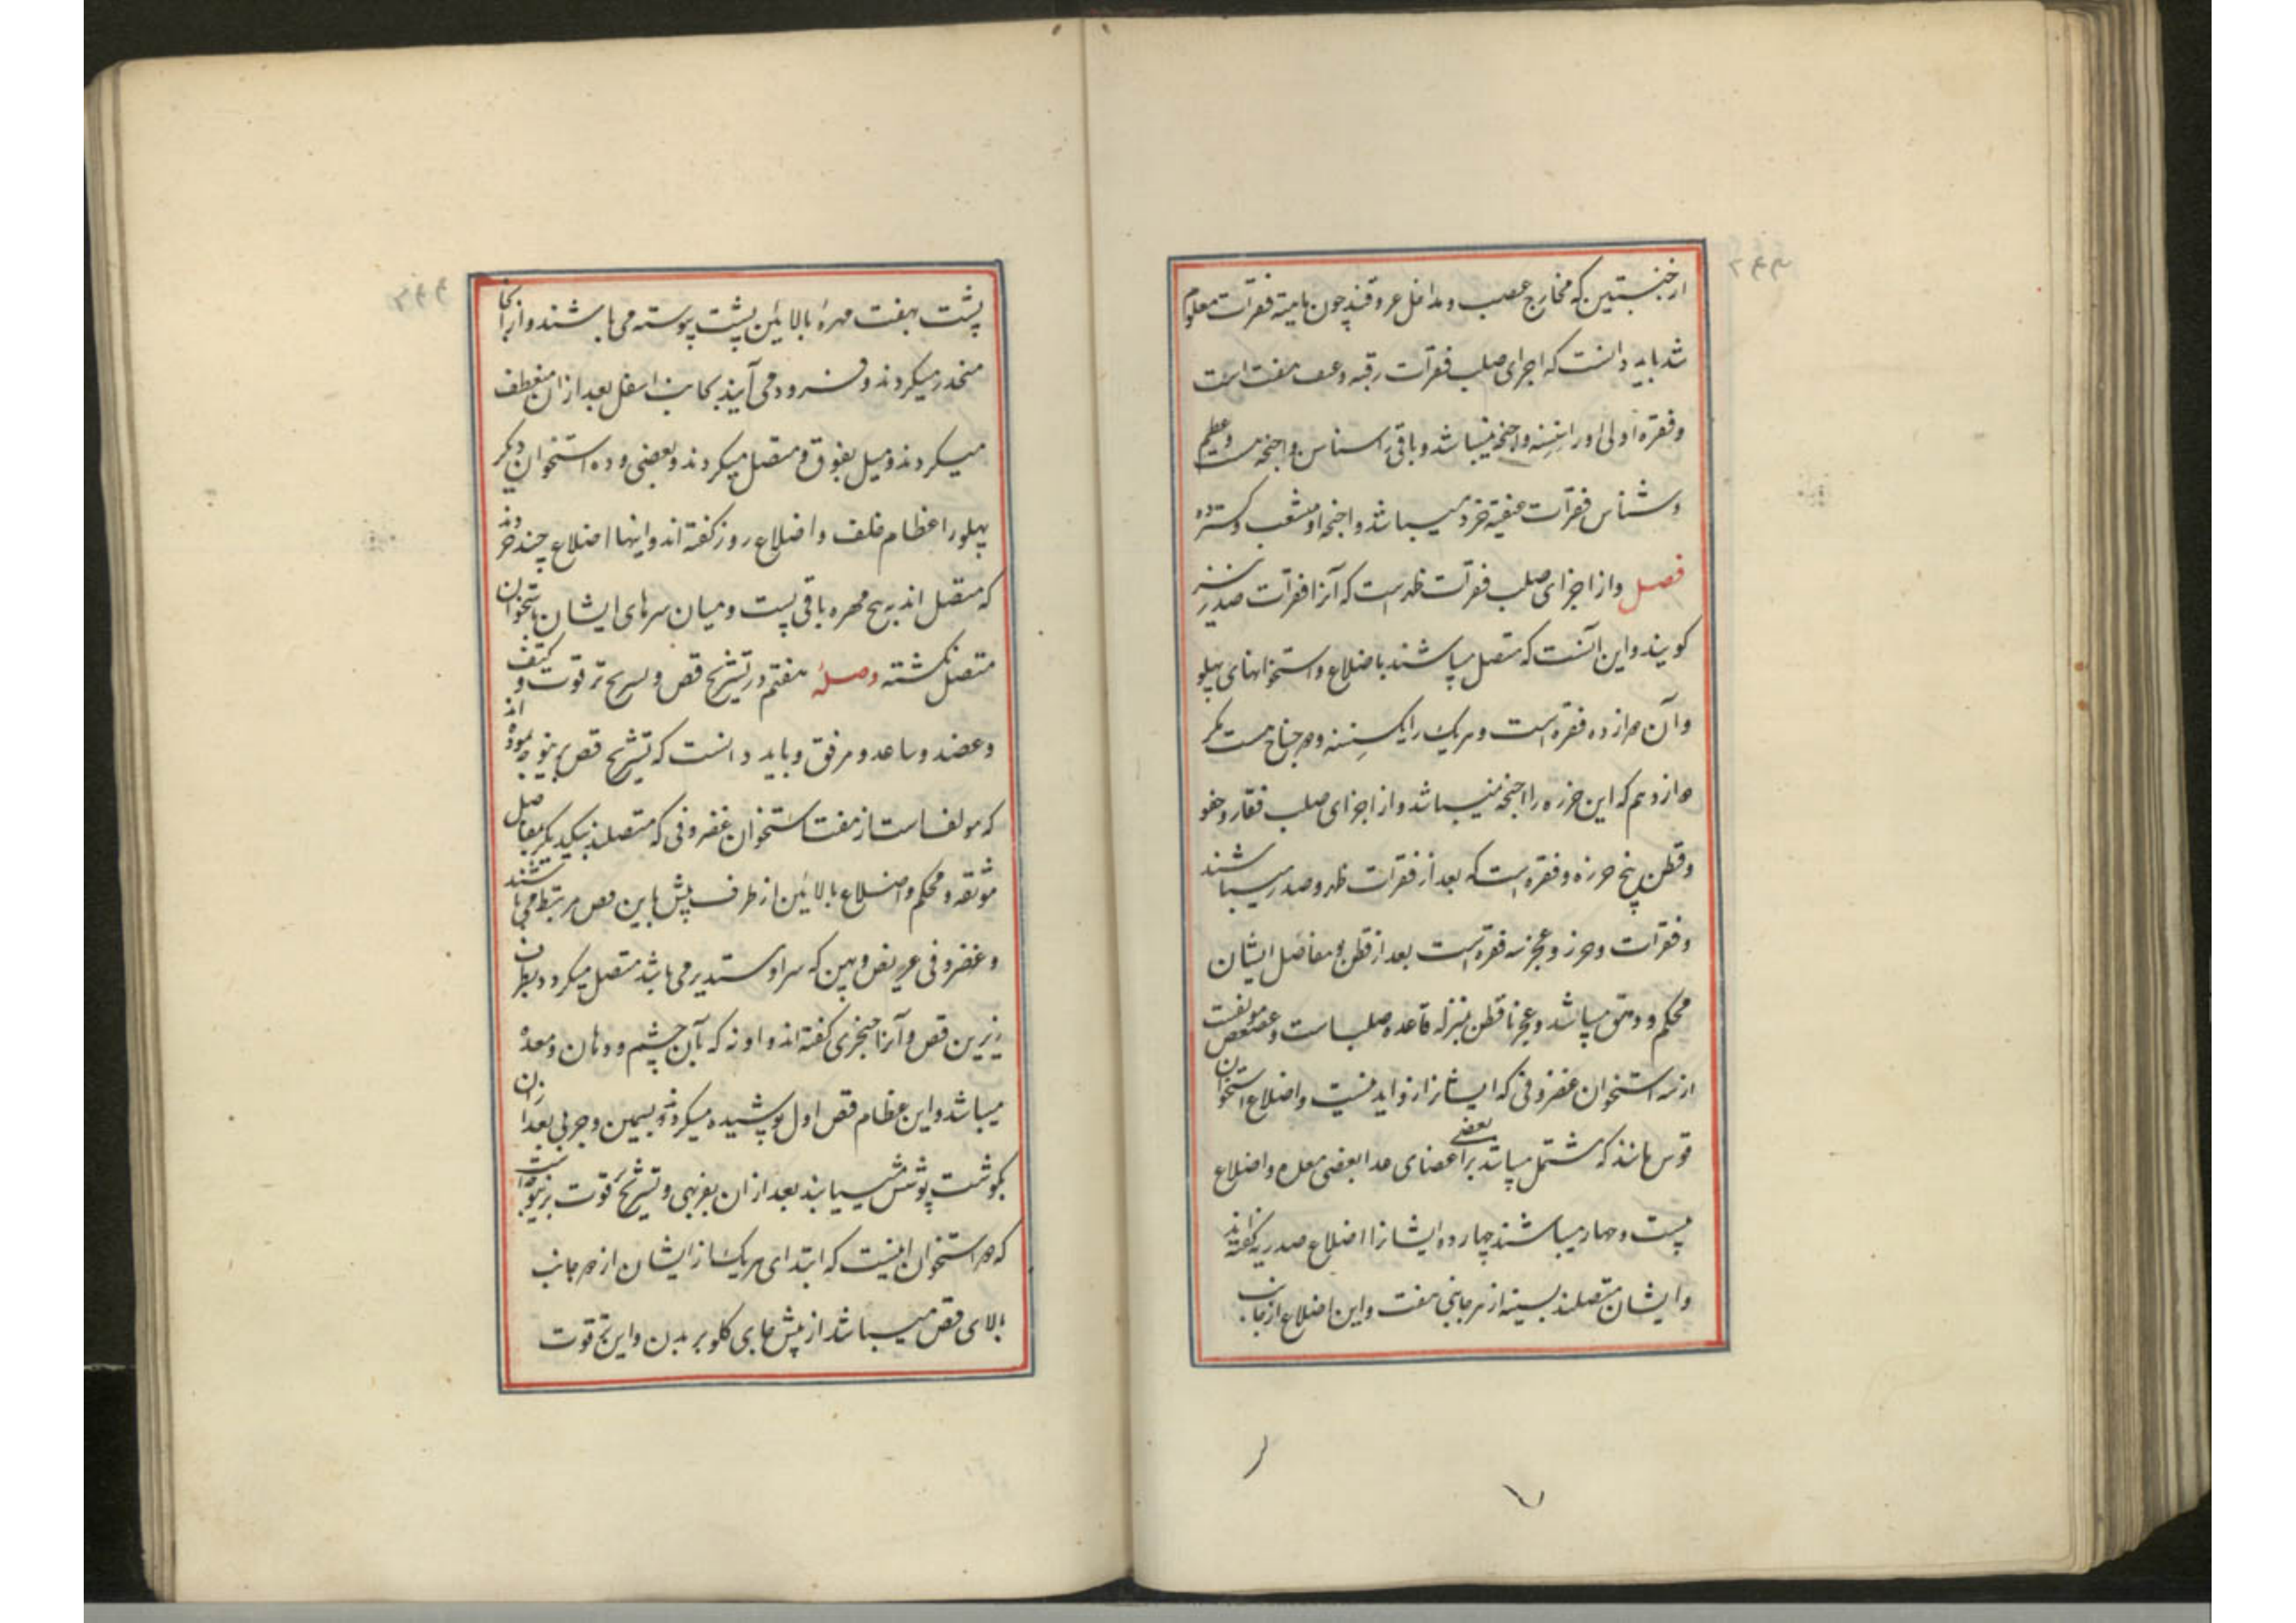 از جنبتین که مخارج عصب و مداخل عروقند چون ماهیته فقرات معلوم
شد باید دانست که اجزای صلب فقرات رقبه و عنق هفت است
و فقره اولی او را سنسنه و اجنحه نمیباشد و باقی را سناسن و اجنحه هست و عظیم
و سناسن فقرات عنقیه خرد میباشد و اجنحه او منشعب و گسترده
فصل و از اجزای صلب فقرات ظهر است که آنرا فقرات صدر نیز
کویند و این آنست که متصل میباشند باضلاع و استخوانهای پهلو
و آن دوازده فقره است و هر یک را یک سنسنه و دو جناح هست مگر
دوازدهم که این خرزه را اجنحه نمیباشد و از اجزای صلب فقار و حقو
و قطن پنج خرزه و فقره است که بعد از فقرات ظهر و صدر میباشند
و فقرات و عجز سه فقره است بعد از قطن و مفاصل ایشان
محکم میباشد و عجز با قطن بمنزله قاعده صلب است و عصعص مولفست
از سه استخوان غضروفی که ایشانرا زواید نیست و اضلاع استخوان
قوس مانند که مشتمل میباشد بر اعضای بعضی و اضلاع
بیست و چهار میباشند چهارده ایشانرا اضلاع صدریه گفته اند
و ایشان متصلند بسینه از هر جانبی هفت و این اضلاع از جانب
پشت بهفت مهره بالائین پشت پیوسته می باشند و از آنجا
منحدر میکردند و فرود می آیند بجانب اسفل بعد از ان منعطف
میکردند و میل بفوق و متصل میکردند و بعضی و ده استخوان دیکر
پهلو را عظام خلف و اضلاع زور کفته اند و اینها اضلاع چند خردند
که متصل اند به پنج مهره باقی پست و میان سرهای ایشان باستخوان
متصل نکشته وصله هفتم در تشریح قص و تشریح ترقوت و کتف
و عضد و ساعد و مرفق و باید دانست که تشریح قص برینوجه نموده اند
که مولف است از هفت استخوان غضروفی که متصلند بیکدیکر بمفاصل
موثقه و محکم و اضلاع بالائین از طرف پیش باین قص مرتبط می باشند
و غضروفی عریض و پهن که سر او مستدیر می باشد متصل میکردد بطرف
زیرین قص و آنرا خنجری کفته اند و معده
میباشد و این عظام قص اول پوشیده میکردد و بسمین و چربی بعد از ان
بکوشت پوشش مییابند بعد از ان بفربهی و تشریح ترقوت برینوجه است
که دو استخوان اینست که ابتدای هر یک از ایشان از دو جانب
بالای قص میباشد از پیش جای کلو بر بدن و این ترقوت